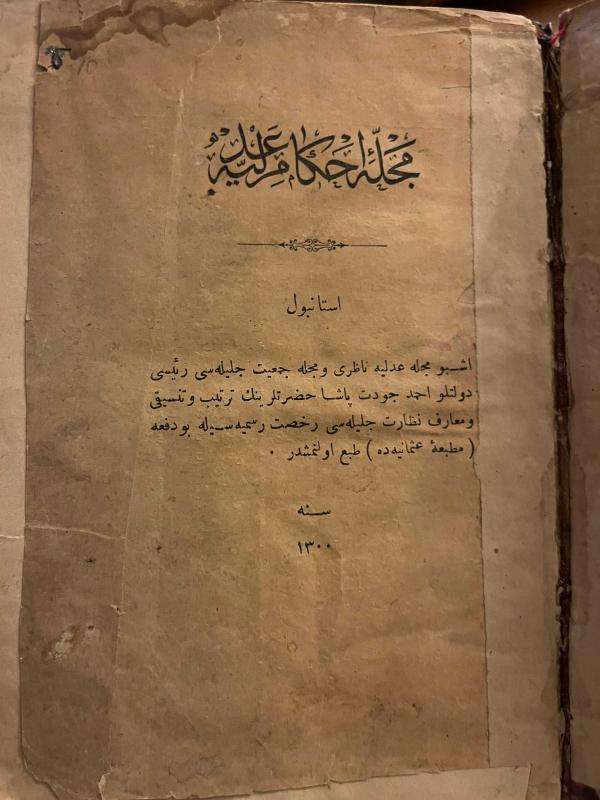 مجلۀ احكام عدليه
استانبول
اشبو مجله عدليه ناظرى و مجله جمعيت جليله‌سى رئيسى
دولتلو احمد جودت پاشا حضرتلرينك ترتيب و تنسيقى
و معارف نظارت جليله‌سى رخصت رسميه‌سيله بو دفعه
( مطبعۀ عثمانيه‌ده ) طبع اولنمشدر .
سنه
١٣٠٠